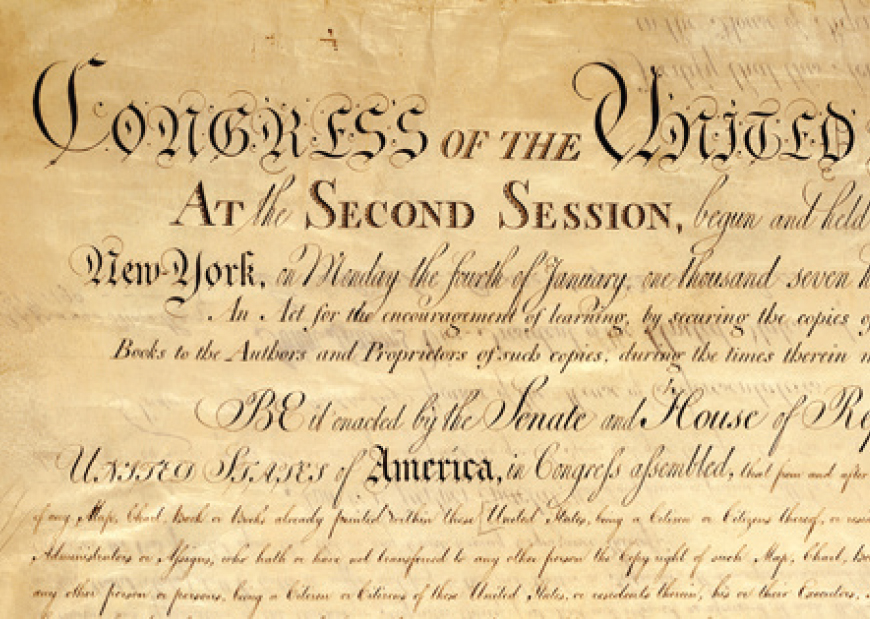 CONGRESS OF THE UNITED
AT the SECOND SESSION, begun and held
New-York, on Monday the fourth of January, one thousand seven
An Act for the encouragement of learning, by securing the copies
Books to the Authors and Proprietors of such copies, during the times therein
BE it enacted by the Senate and House of
UNITED STATES of America, in Congress assembled, that from and after
of any Map, Chart, Book or Books already printed within these United States, being a Citizen or Citizens thereof, or
Administrators or Assigns, who hath or have not transferred to any other person the Copy right of such Map, Chart,
any other person or persons, being a Citizen or Citizens of these United States, or residents therein, his or their Executors,